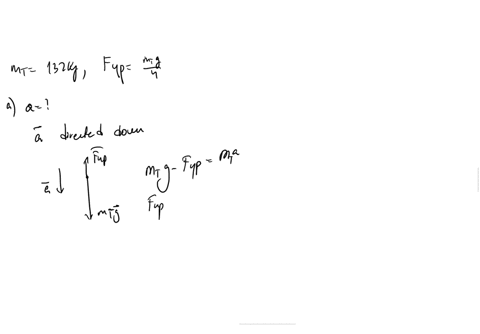 m_T = 132kg, F_up = m_T g / 4
a) a = ?
a̅ directed down
F̅_up
a̅ ↓
m_T g̅
m_T g - F_up = m_T a
F_up